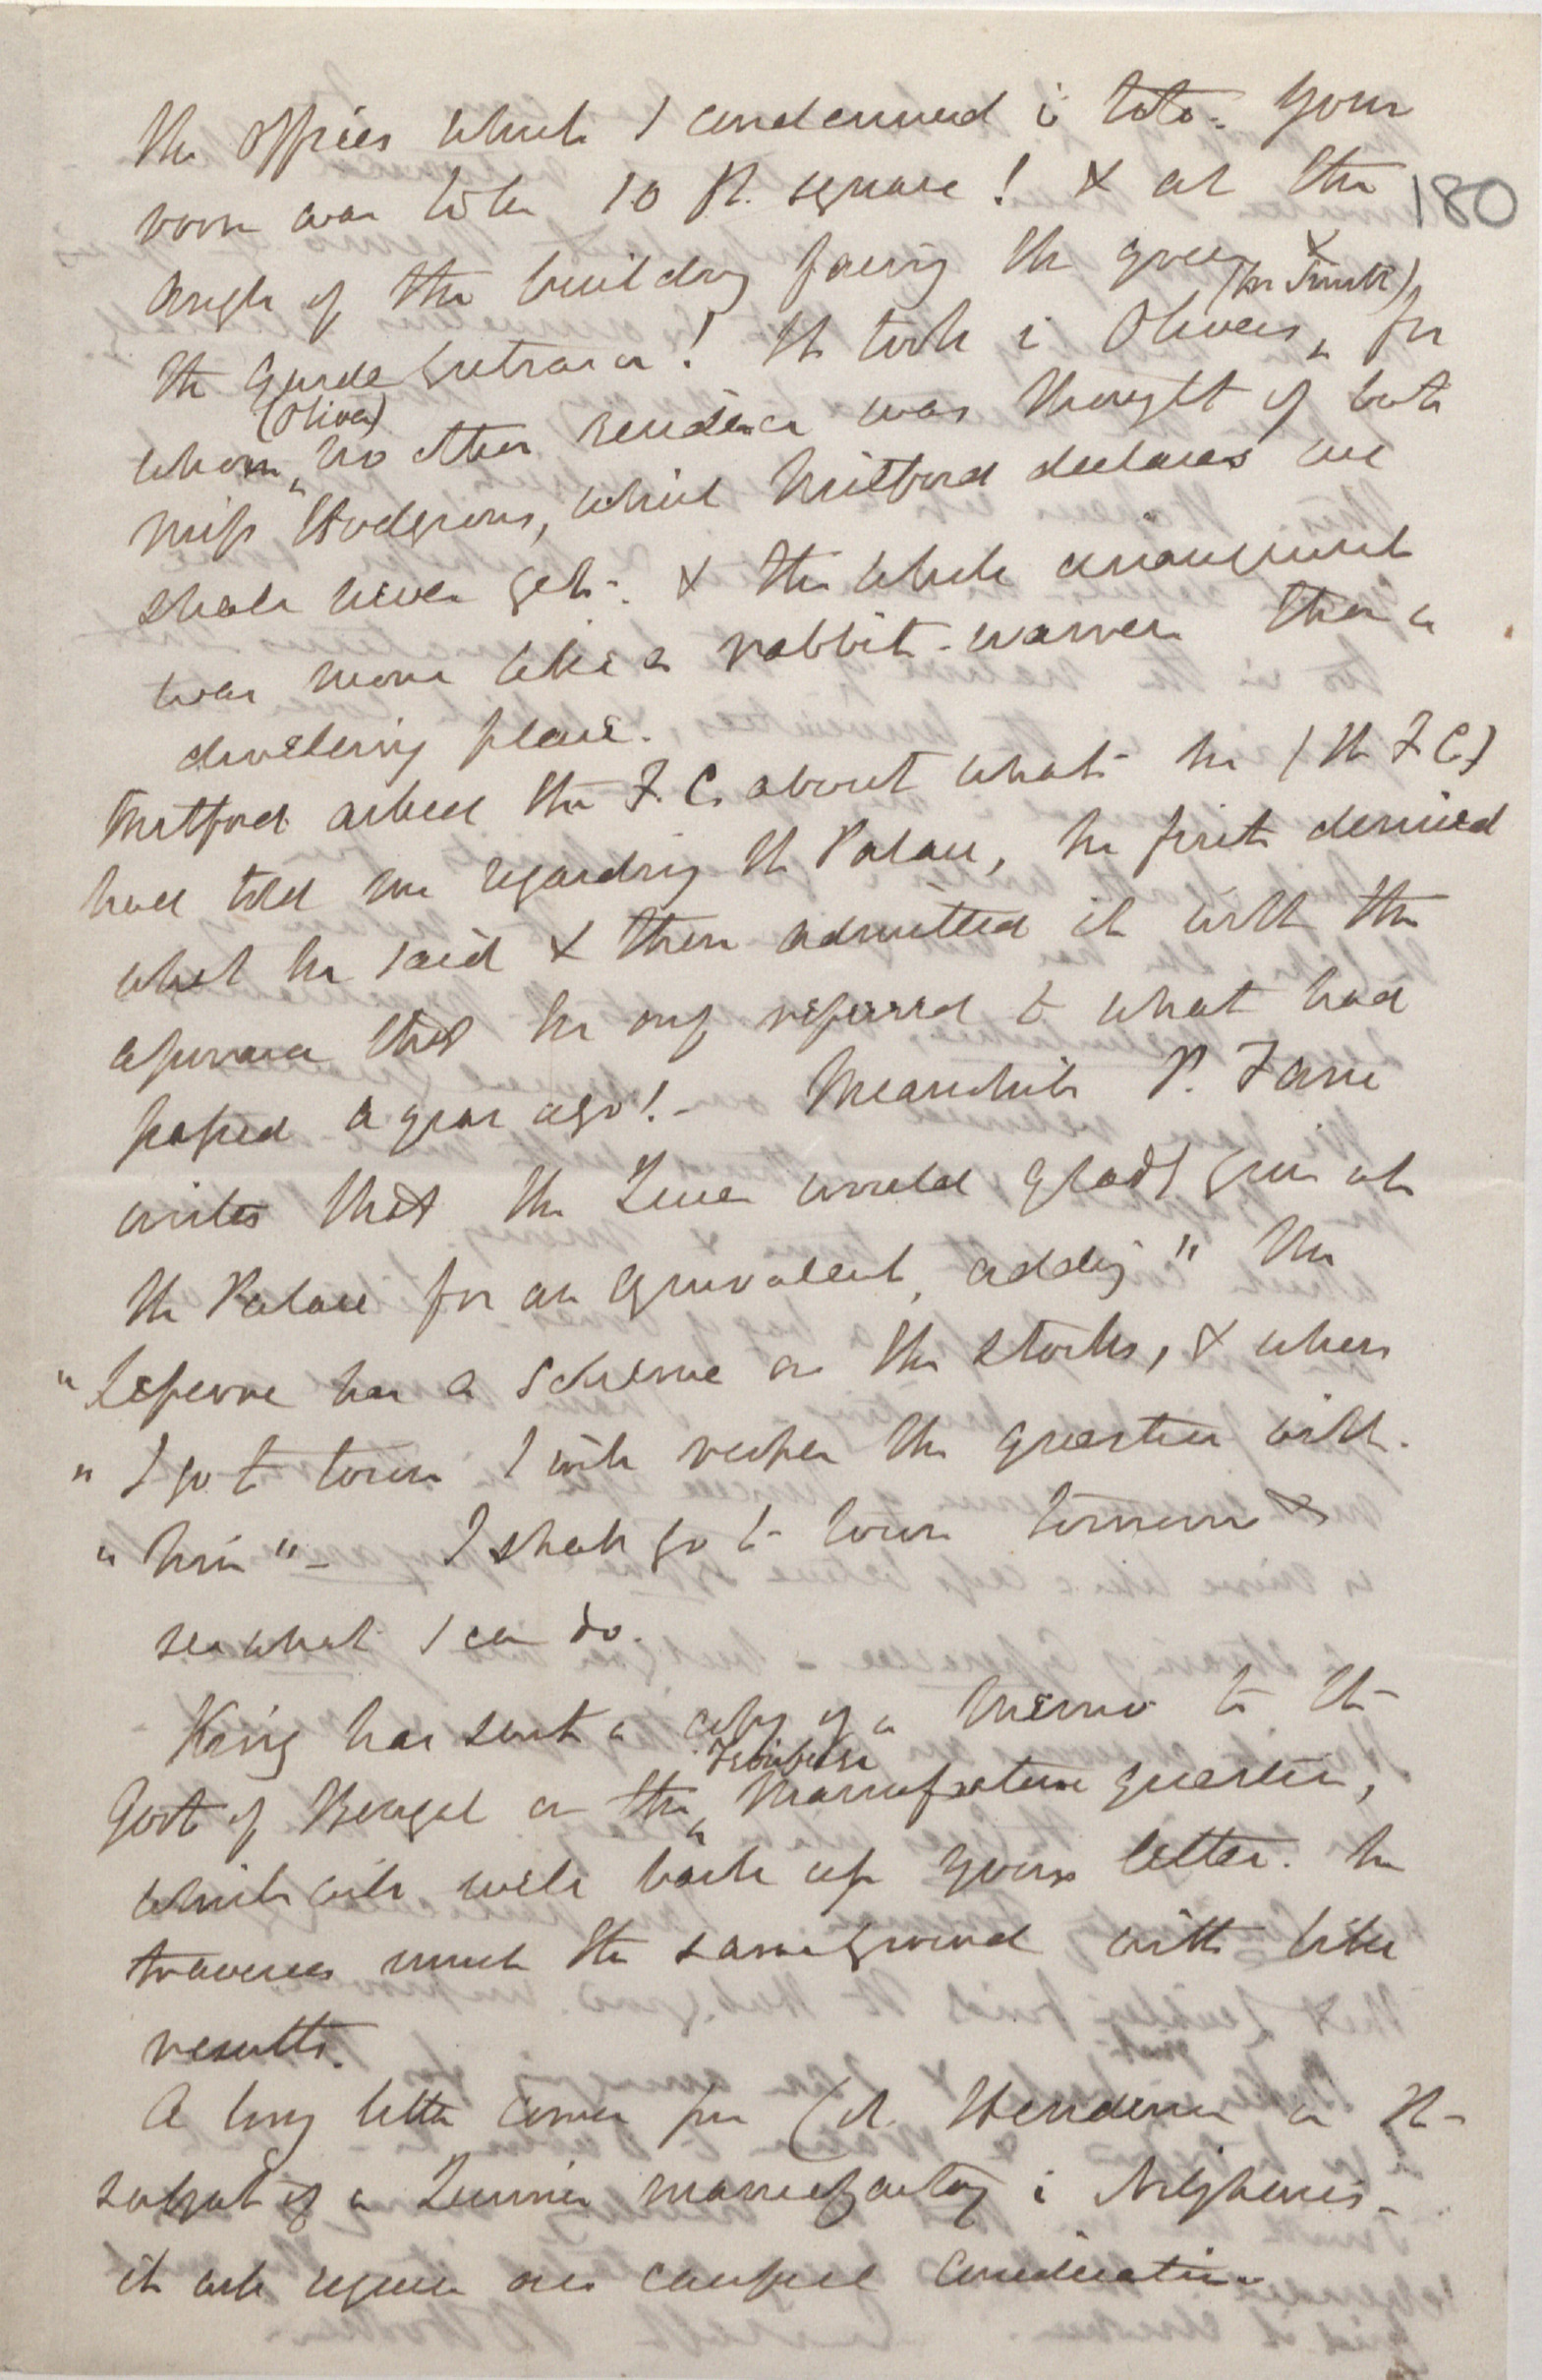 the offices which I condemned in toto. Your
room was to be 10 ft. square! & at the
180
angle of the building facing the green &
the Garde Entrance! It took in Olivers (or Smith), for
whom (Oliver) no other residence was thought of but
Miss Hodgsons, which Mitford declares we
shall never get. & the whole arrangement
was more like a rabbit-warren than a
dwelling place.
Mitford asked the F.C. about what he (the F.C.)
had told me regarding the Palace, he first denied
what he said & then admitted it with the
that he only referred to what had
passed a year ago! — Meanwhile P. Fane
writes that the Queen would gladly give up
the Palace for an equivalent, adding "Mr
"Lefevre has a scheme on the stocks, & when
"I go to town I will reopen the question with
"him" — I shall go to town tomorrow &
see what I can do.
King has sent a copy of a Memo to the
Govt of Bengal on the Febrifuge Manufacture question,
which will well back up your letter. he
traverses much the same ground with like
results.
A long letter comes from Col. Henderson on the
subject of a Quinine manufactory in Nilgherries —
it will require our careful consideration